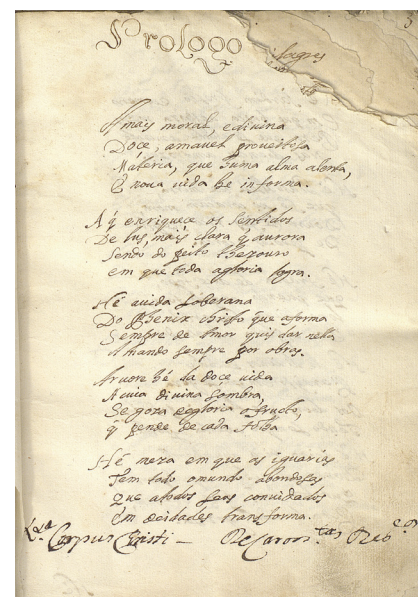 Prologo
A mais moral, e divina
Doce, amavel proveitosa
Materia, que huma alma alenta,
E nova vida lhe informa.
A q̃ enriquece os sentidos
De lus, mais clara q̃ aurora
Sendo do peito thezouro
em que toda a gloria logra.
Hé a vida soberana
Do Phenix christo que a forma
Sempre de Amor quis dar nella
Amando sempre por obras.
Arvore hé da doce vida
A cuia divina sombra,
Se goza de gloria o fructo,
q̃ pende de cada folha
Hé meza em que as iguarias
Tem todo o mundo abondosas
Que a todos seos convidados
Em deidades transforma.
Corpus Christi